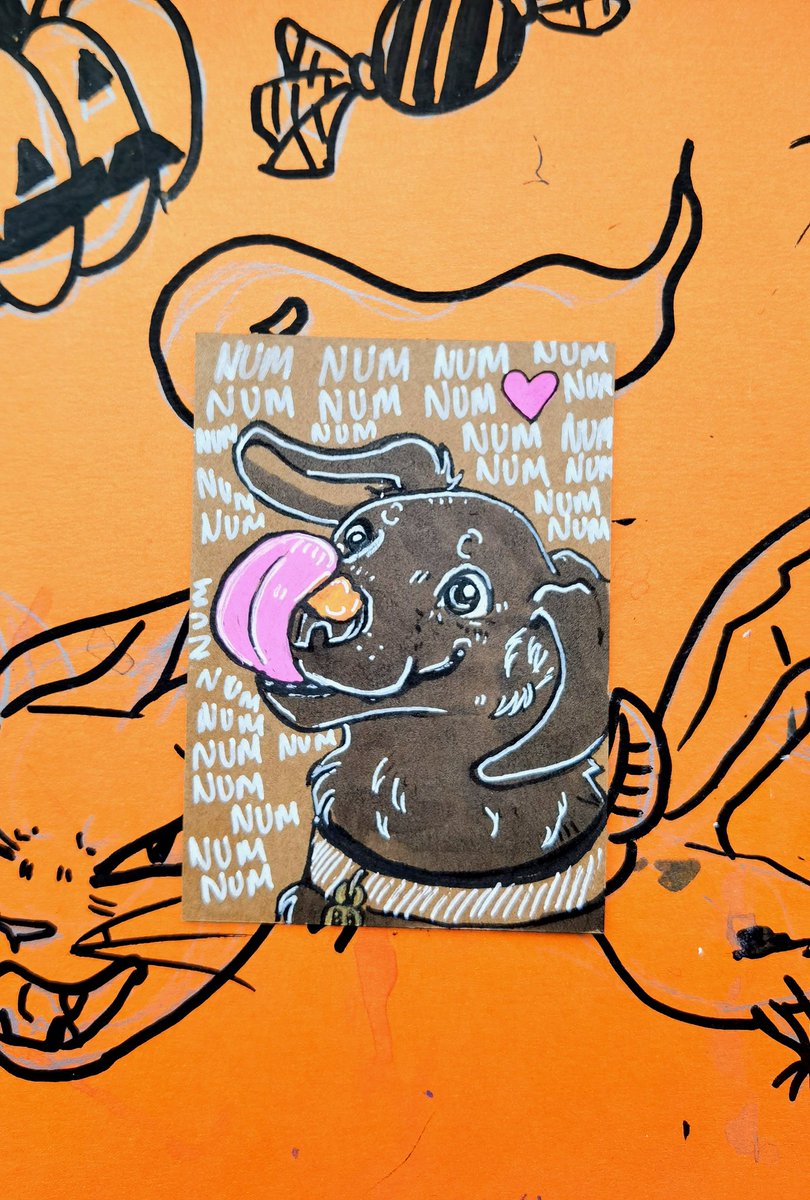 NUM NUM NUM NUM
NUM NUM NUM NUM
NUM NUM NUM NUM
NUM NUM NUM
NUM NUM
NUM
NUM
NUM
NUM
NUM NUM
NUM
NUM
NUM
NUM